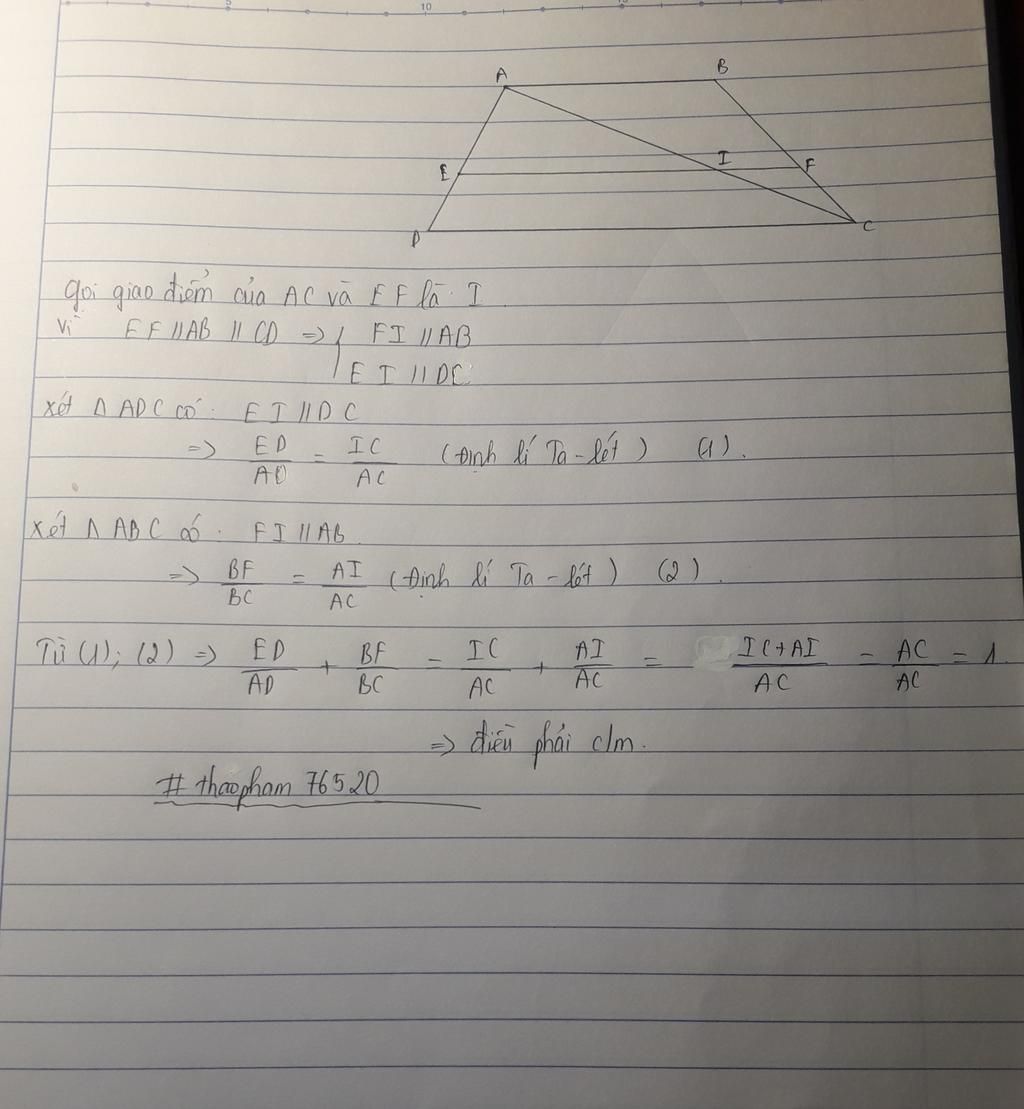 5 10
A B
E I F
D C
Gọi giao điểm của AC và EF là I
Vì EF // AB // CD => { FI // AB
EI // DC
Xét Δ ADC có: EI // DC
=> ED/AD = IC/AC (Định lí Ta-lét) (1).
Xét Δ ABC có: FI // AB
=> BF/BC = AI/AC (Định lí Ta-lét) (2).
Từ (1); (2) => ED/AD + BF/BC = IC/AC + AI/AC = IC+AI/AC = AC/AC = 1.
=> điều phải c/m.
# thaopham 76520